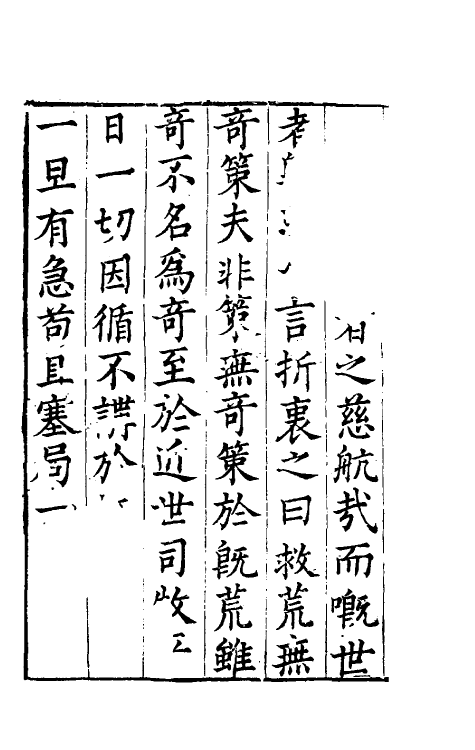 之慈航哉而嘅世
考言折衷之曰救荒無
奇策夫非策無奇策於既荒雖
奇不名爲奇至於近世司收
日一切因循不講於
一旦有急苟且塞局一